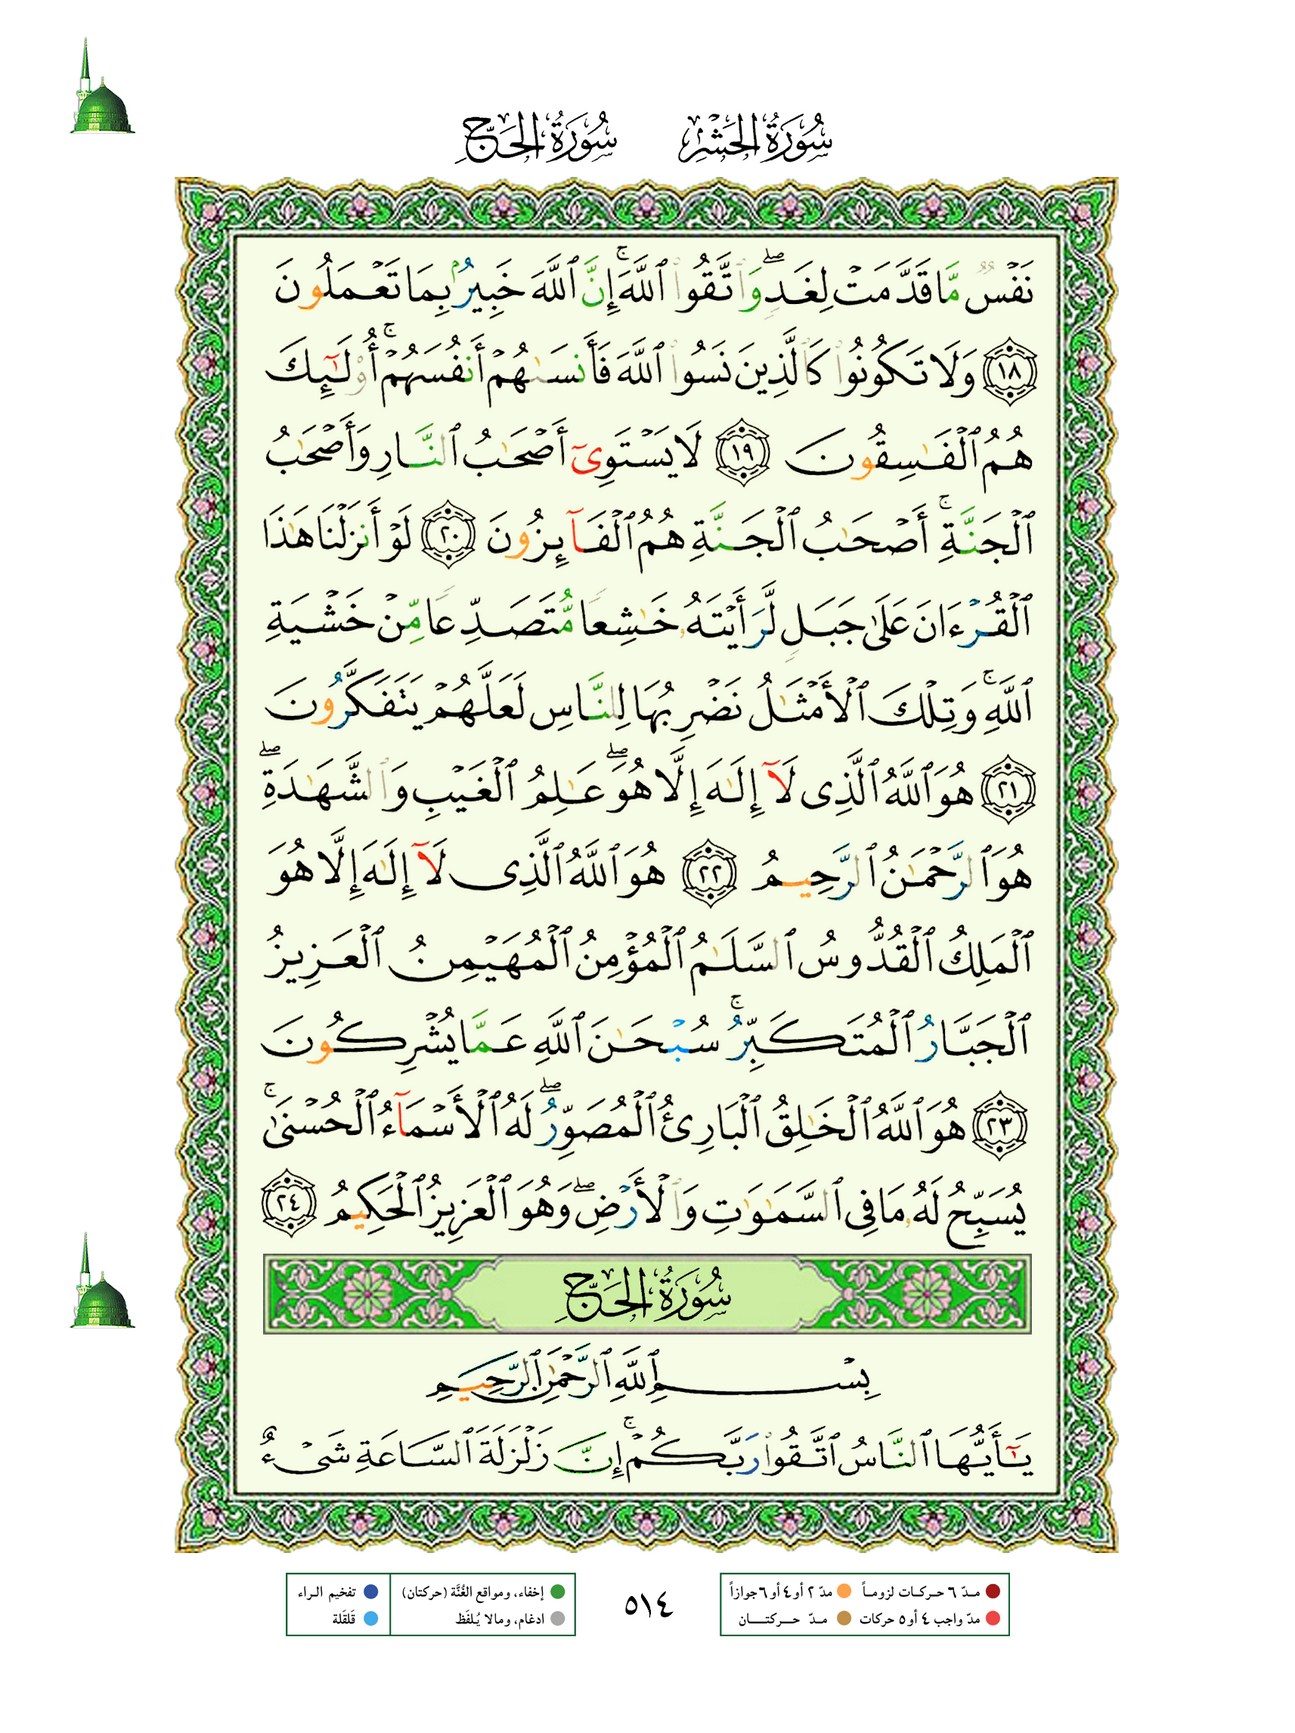 سُورَةُ الحَشْرِ سُورَةُ الحَجِّ
نَفْسٌ مَّا قَدَّمَتْ لِغَدٍ ۖ وَاتَّقُوا۟ ٱللَّهَ ۚ إِنَّ ٱللَّهَ خَبِيرٌۢ بِمَا تَعْمَلُونَ
١٨ وَلَا تَكُونُوا۟ كَٱلَّذِينَ نَسُوا۟ ٱللَّهَ فَأَنسَىٰهُمْ أَنفُسَهُمْ ۚ أُو۟لَٰٓئِكَ
هُمُ ٱلْفَٰسِقُونَ ١٩ لَا يَسْتَوِىٓ أَصْحَٰبُ ٱلنَّارِ وَأَصْحَٰبُ
ٱلْجَنَّةِ ۚ أَصْحَٰبُ ٱلْجَنَّةِ هُمُ ٱلْفَآئِزُونَ ٢٠ لَوْ أَنزَلْنَا هَٰذَا
ٱلْقُرْءَانَ عَلَىٰ جَبَلٍ لَّرَأَيْتَهُۥ خَٰشِعًا مُّتَصَدِّعًا مِّنْ خَشْيَةِ
ٱللَّهِ ۚ وَتِلْكَ ٱلْأَمْثَٰلُ نَضْرِبُهَا لِلنَّاسِ لَعَلَّهُمْ يَتَفَكَّرُونَ
٢١ هُوَ ٱللَّهُ ٱلَّذِى لَآ إِلَٰهَ إِلَّا هُوَ ۖ عَٰلِمُ ٱلْغَيْبِ وَٱلشَّهَٰدَةِ ۖ
هُوَ ٱلرَّحْمَٰنُ ٱلرَّحِيمُ ٢٢ هُوَ ٱللَّهُ ٱلَّذِى لَآ إِلَٰهَ إِلَّا هُوَ
ٱلْمَلِكُ ٱلْقُدُّوسُ ٱلسَّلَٰمُ ٱلْمُؤْمِنُ ٱلْمُهَيْمِنُ ٱلْعَزِيزُ
ٱلْجَبَّارُ ٱلْمُتَكَبِّرُ ۚ سُبْحَٰنَ ٱللَّهِ عَمَّا يُشْرِكُونَ
٢٣ هُوَ ٱللَّهُ ٱلْخَٰلِقُ ٱلْبَارِئُ ٱلْمُصَوِّرُ ۖ لَهُ ٱلْأَسْمَآءُ ٱلْحُسْنَىٰ ۚ
يُسَبِّحُ لَهُۥ مَا فِى ٱلسَّمَٰوَٰتِ وَٱلْأَرْضِ ۖ وَهُوَ ٱلْعَزِيزُ ٱلْحَكِيمُ ٢٤
سُورَةُ الحَجِّ
بِسْمِ ٱللَّهِ ٱلرَّحْمَٰنِ ٱلرَّحِيمِ
يَٰٓأَيُّهَا ٱلنَّاسُ ٱتَّقُوا۟ رَبَّكُمْ ۚ إِنَّ زَلْزَلَةَ ٱلسَّاعَةِ شَىْءٌ
مـدّ ٦ حـركـات لزومـاً مدّ ٢ أو ٤ أو ٦ جوازاً
مدّ واجب ٤ أو ٥ حركات مـدّ حـــركتــــان
٥١٤
إخفاء، ومواقع الغُنَّة (حركتان) تفخيم الـراء
ادغام، ومالا يُـلفَظ قَلقَلة